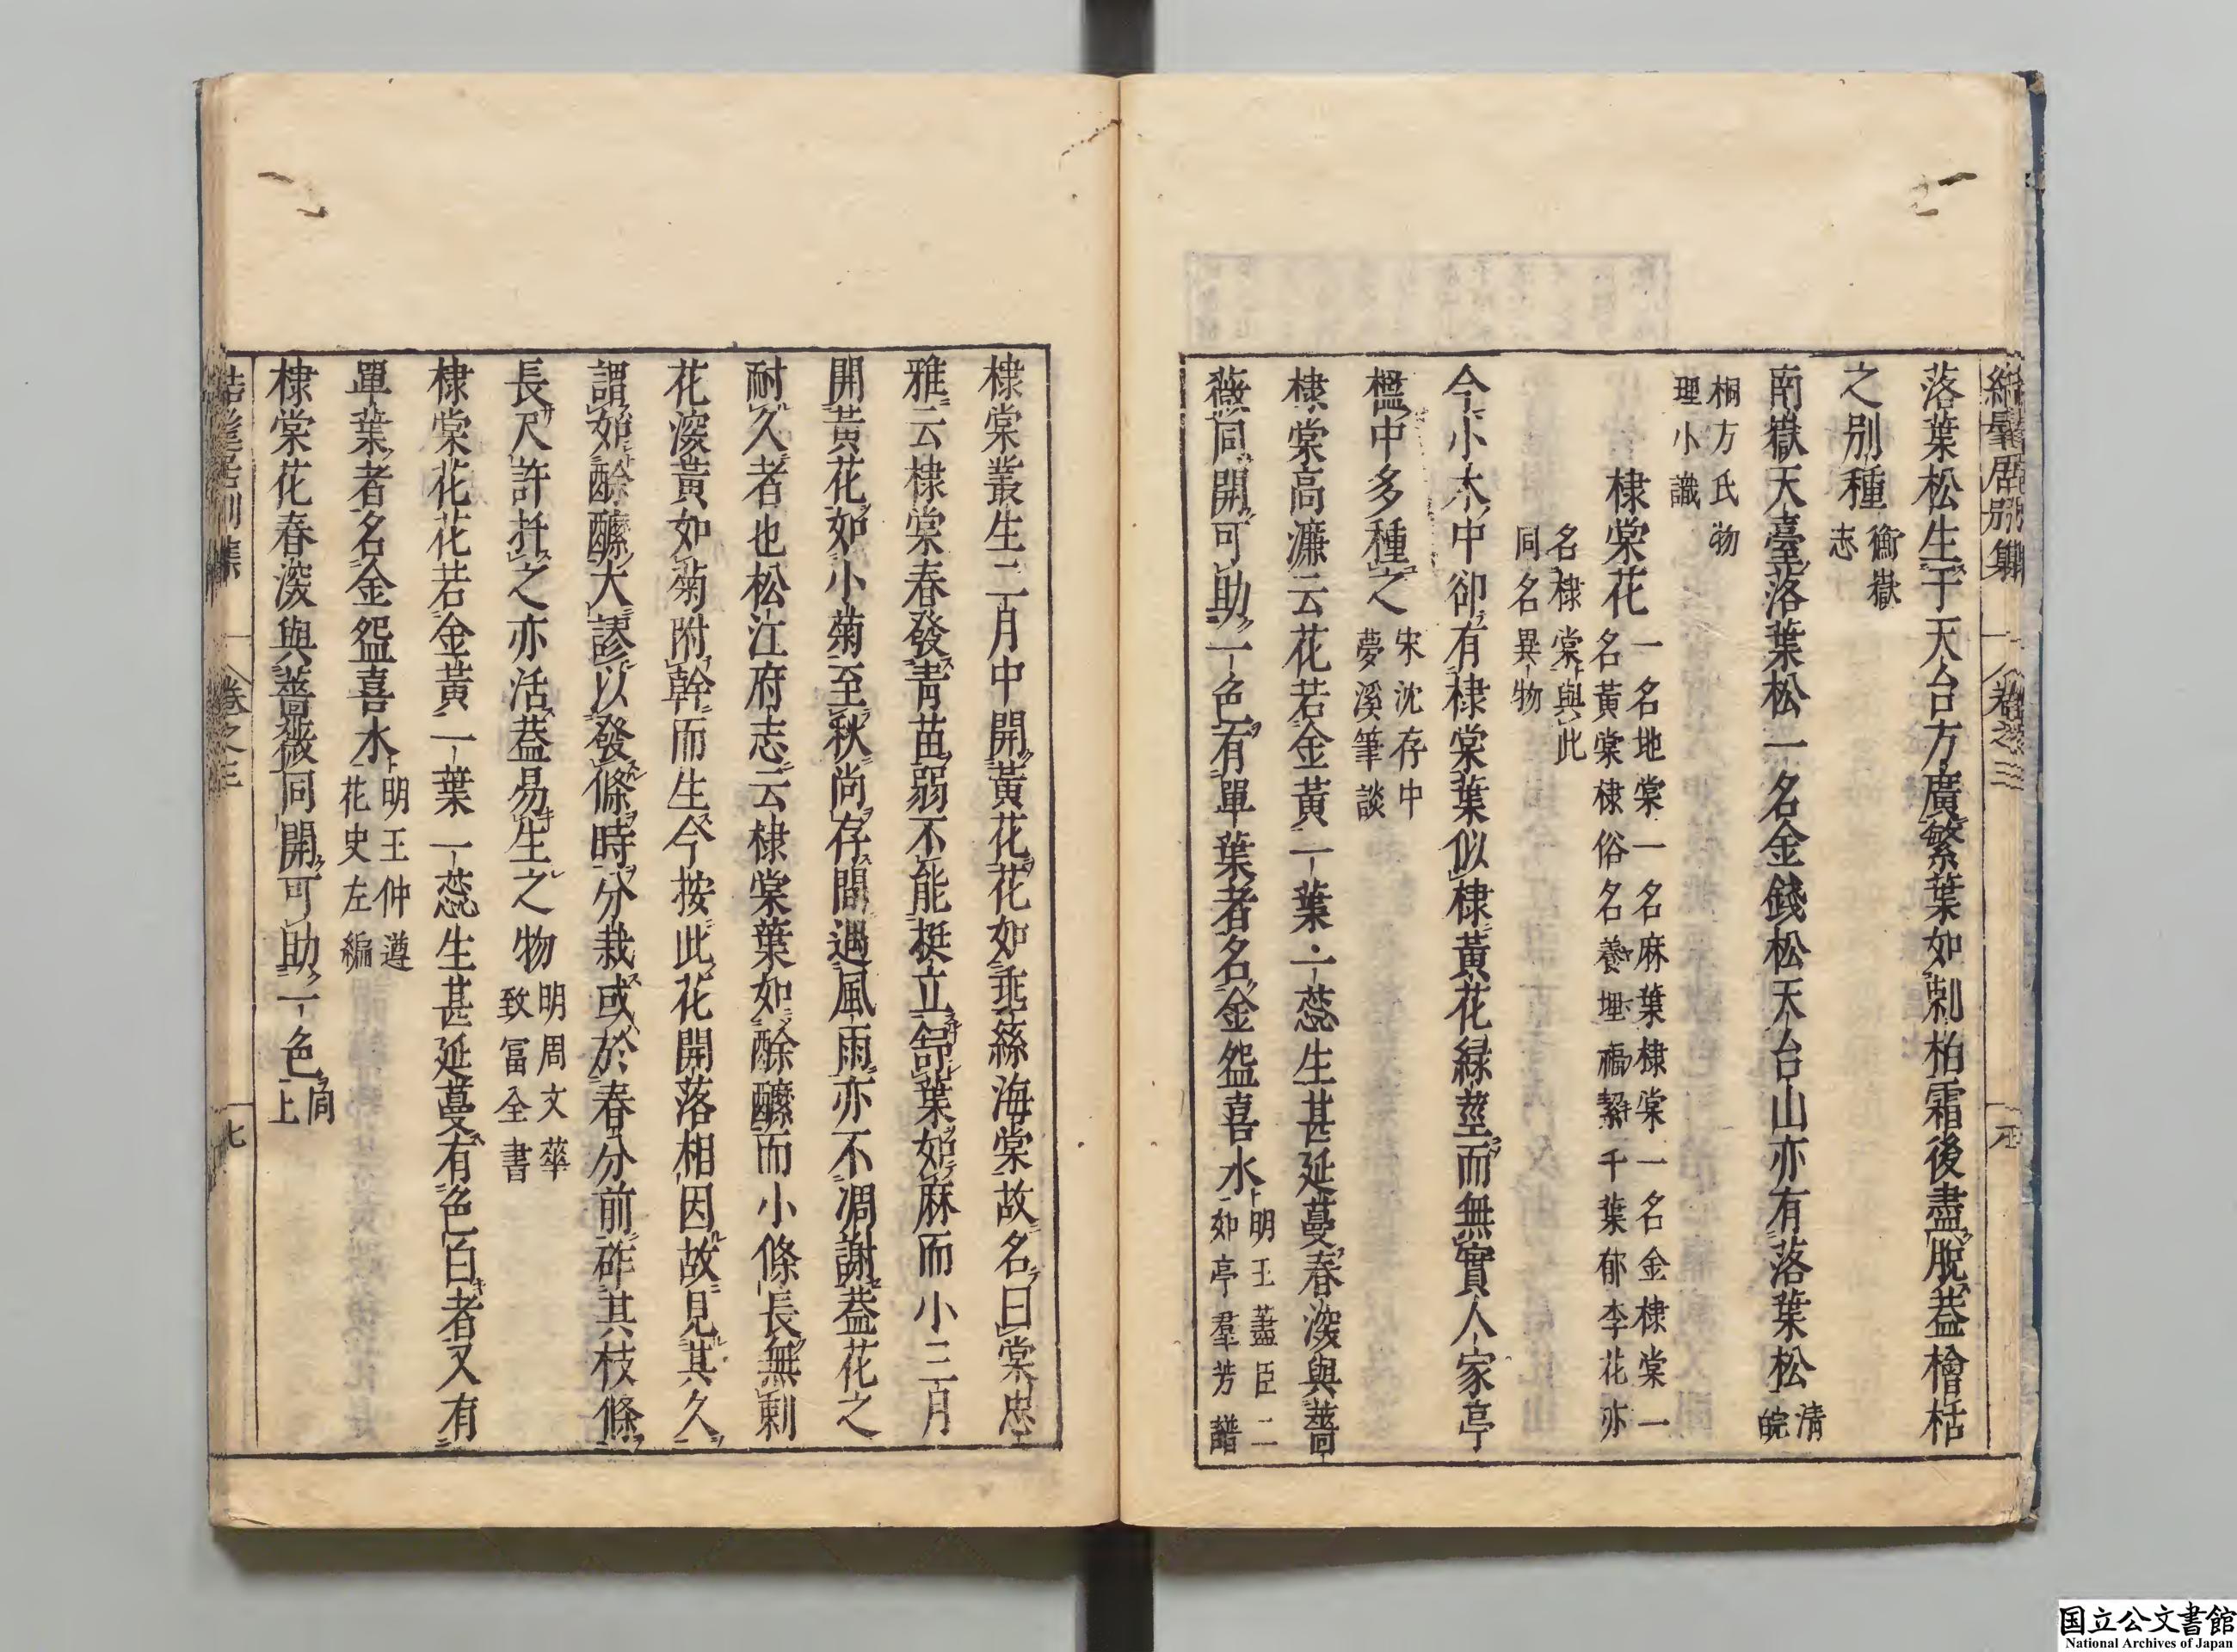 結髦居別集 卷之三
落葉松生于天台方廣繁葉如刺柏霜後盡脫葢檜栝
之別種衡嶽志
南嶽天臺落葉松一名金錢松天台山亦有落葉松清皖
桐方氏物理小識
棣棠花一名地棠一名麻葉棣棠一名金棣棠一名黃棠棣俗名養埋福絜千葉郁李花亦
名棣棠與此同名異物
今小木中卻有棣棠葉似棣黃花緑莖而無實人家亭
檻中多種之宋沈存中夢溪筆談
棣棠高濂云花若金黃一葉一蕊生甚延蔓春深與薔
薇同開可助一色有單葉者名金盌喜水明王藎臣二如亭羣芳譜
棣棠叢生二月中開黃花花如垂絲海棠故名曰棠忠
雅云棣棠春發青苗弱不能挺立葉如麻而小三月
開黃花如小菊至秋尚存間遇風雨亦不凋謝葢花之
耐久者也松江府志云棣棠葉如酴醾而小條長無刺
花深黃如菊附幹而生今按此花開落相因故見其久
謂如酴醾大謬以發條時分栽或於春分前砟其枝條
長尺許扦之亦活葢易生之物明周文華致富全書
棣棠花花若金黃一葉一蕊生甚延蔓有色白者又有
單葉者名金盌喜水明王仲遵花史左編
棣棠花春深與薔薇同開可助一色同上
結髦居別集 卷之三 七
国立公文書館
National Archives of Japan